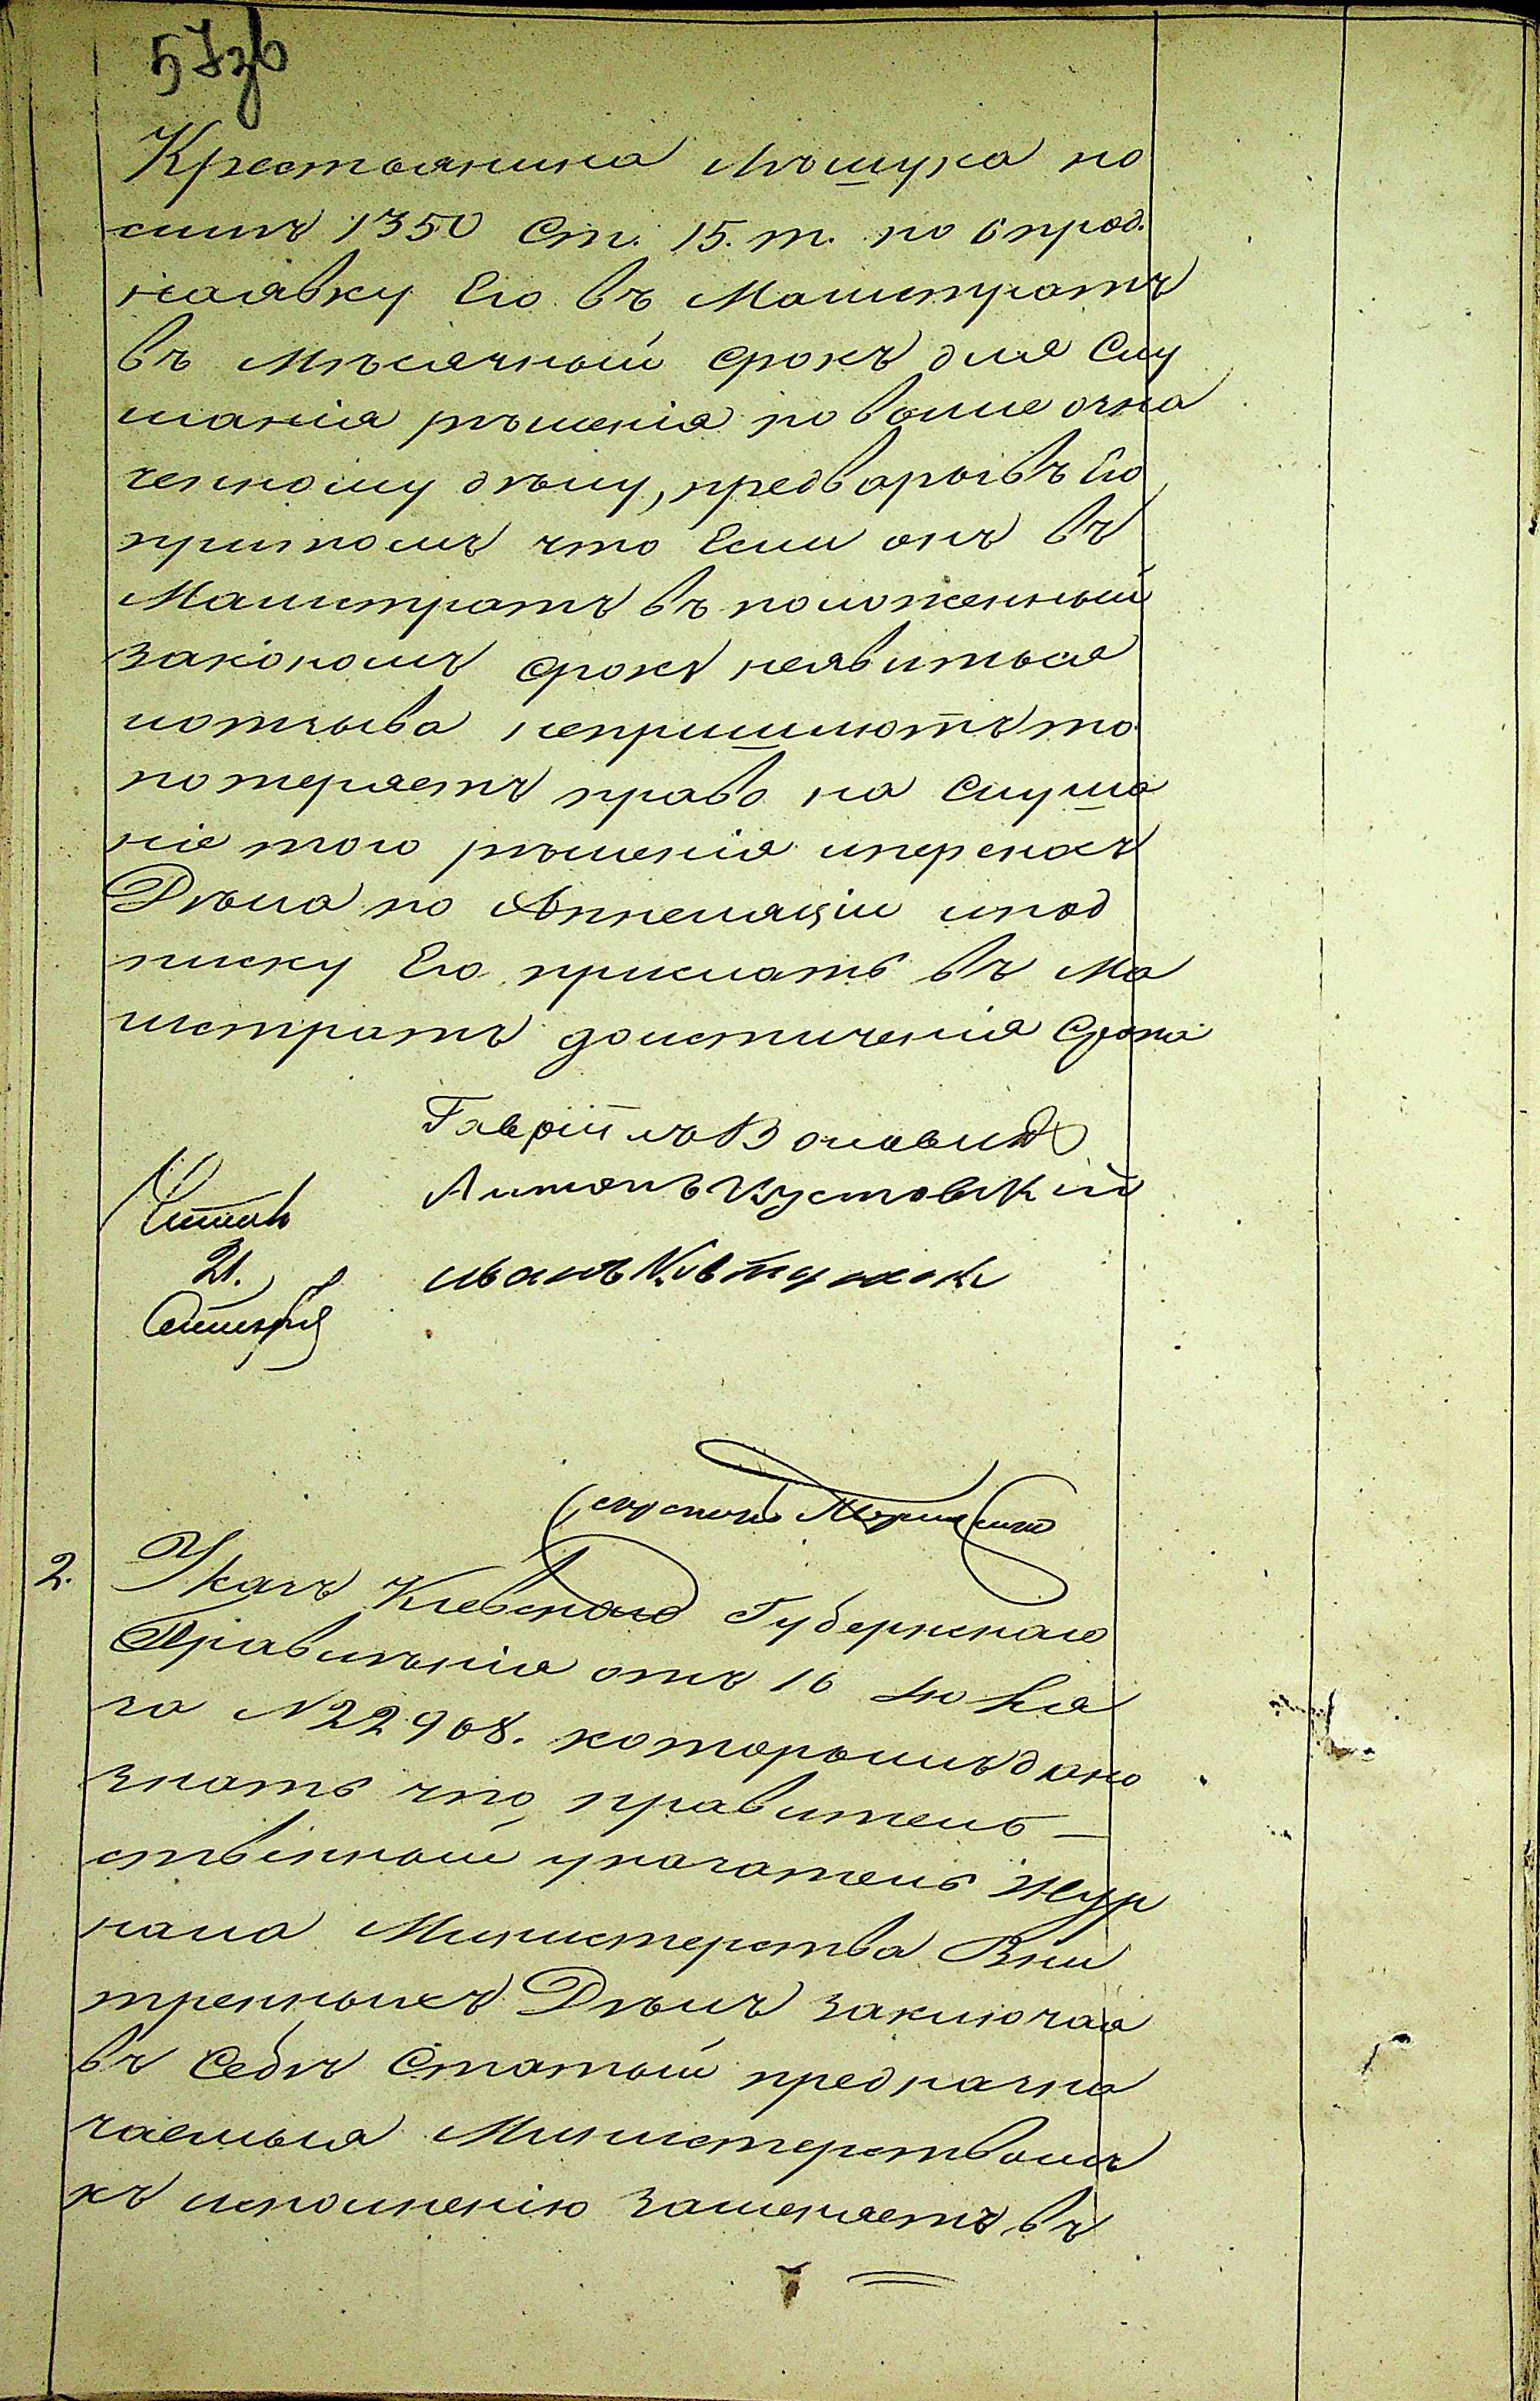 57зв
Крестьянина Мошука по
силѣ 1350 Ст. 15. т. по 6 прод.
наявку Его въ Магистратъ
въ мѣсячный срокъ для Слу
шанія рѣшенія по выше озна
ченному дѣлу, предваривъ Его
притомъ что Если онъ въ
Магистратъ въ положенный
закономъ срокъ неявиться
иотзыва непришлютъ то
потеряетъ право на Слуша
ніе того рѣшенія иперенахъ
Дѣла по Аппеляціи ипод
писку Его прислать въ Ма
гистратъ доистиченія Срока
Гавріилъ
Антонъ Кустовскій
иванъ
Читалъ
21.
2. Указъ Кіевскаго Губернскаго
Правленія отъ 16 Іюня
за N 22908. которымъ дано
знать что правитель-
ственный указатель Жур
нала Министерства Вну
тренныхъ Дѣлъ заключая
въ Себѣ Статьи предназна
чаемыя Министерствомъ
къ исполненію заменяетъ въ